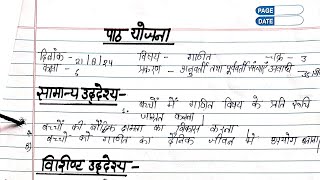 PAGE
DATE
पाठ योजना
दिनांक - 21/8/24 विषय - गणित चक्र - 3
कक्षा - 6 प्रकरण - अनुवर्ती तथा पूर्ववर्ती संख्याएं
सामान्य उद्देश्य-
1. बच्चों में गणित विषय के प्रति रुचि
जाग्रत करना।
बच्चों की बौद्धिक क्षमता का विकास करना
बच्चों को गणित का दैनिक जीवन में उपयोग बताना।
विशिष्ट उद्देश्य-